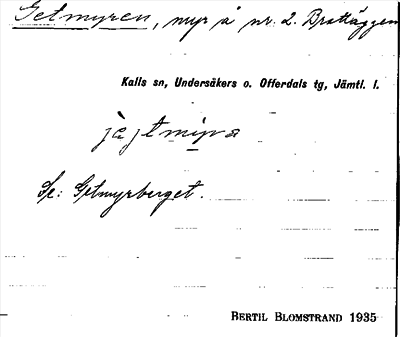 Getmyren, myr å nr. 2. Brattäggen
Kalls sn, Undersåkers o. Offerdals tg, Jämtl. l.
Se: Getmyrberget.
BERTIL BLOMSTRAND 1935